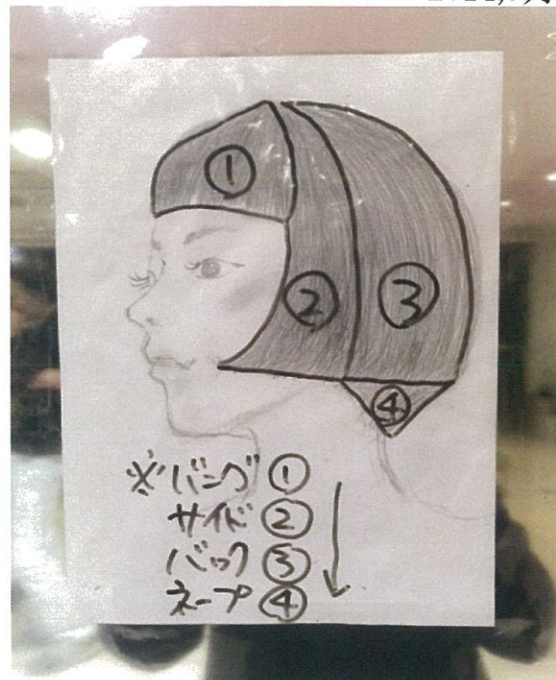 ①
②
③
④
※バング①
サイド②
バック③
ネープ④